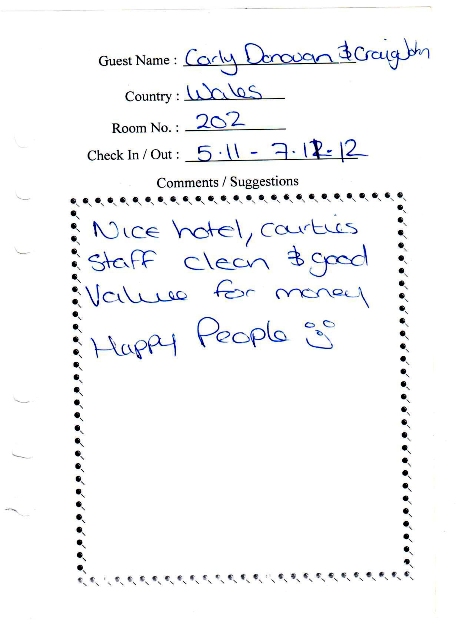 Guest Name : Carly Donovan & Craig John
Country : Wales
Room No. : 202
Check In / Out : 5.11 - 7.12.12
Comments / Suggestions
Nice hotel, courties
Staff clean & good
Value for money
Happy People